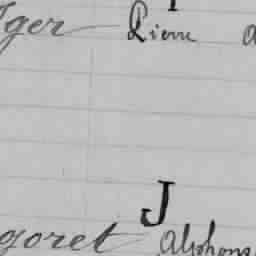 ger Pierre
J
goret Alphons